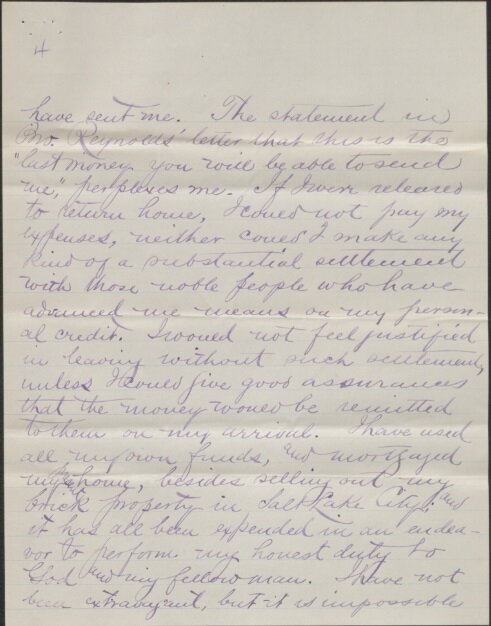 4
have sent me. The statement in
Bro. Reynolds' letter that this is the
"last money you will be able to send
me," perplexes me. If I were released
to return home, I could not pay my
expenses, neither could I make any
kind of a substantial settlement
with those noble people who have
advanced me means on my person-
al credit. I would not feel justified
in leaving without such settlement,
unless I could give good assurances
that the money would be remitted
to them on my arrival. I have used
all my own funds, and mortgaged
my home, besides selling out my
brick property in Salt Lake City, and
it has all been expended in an endea-
vor to perform my honest duty to
God and my fellowman. I have not
been extravagant, but it is impossible